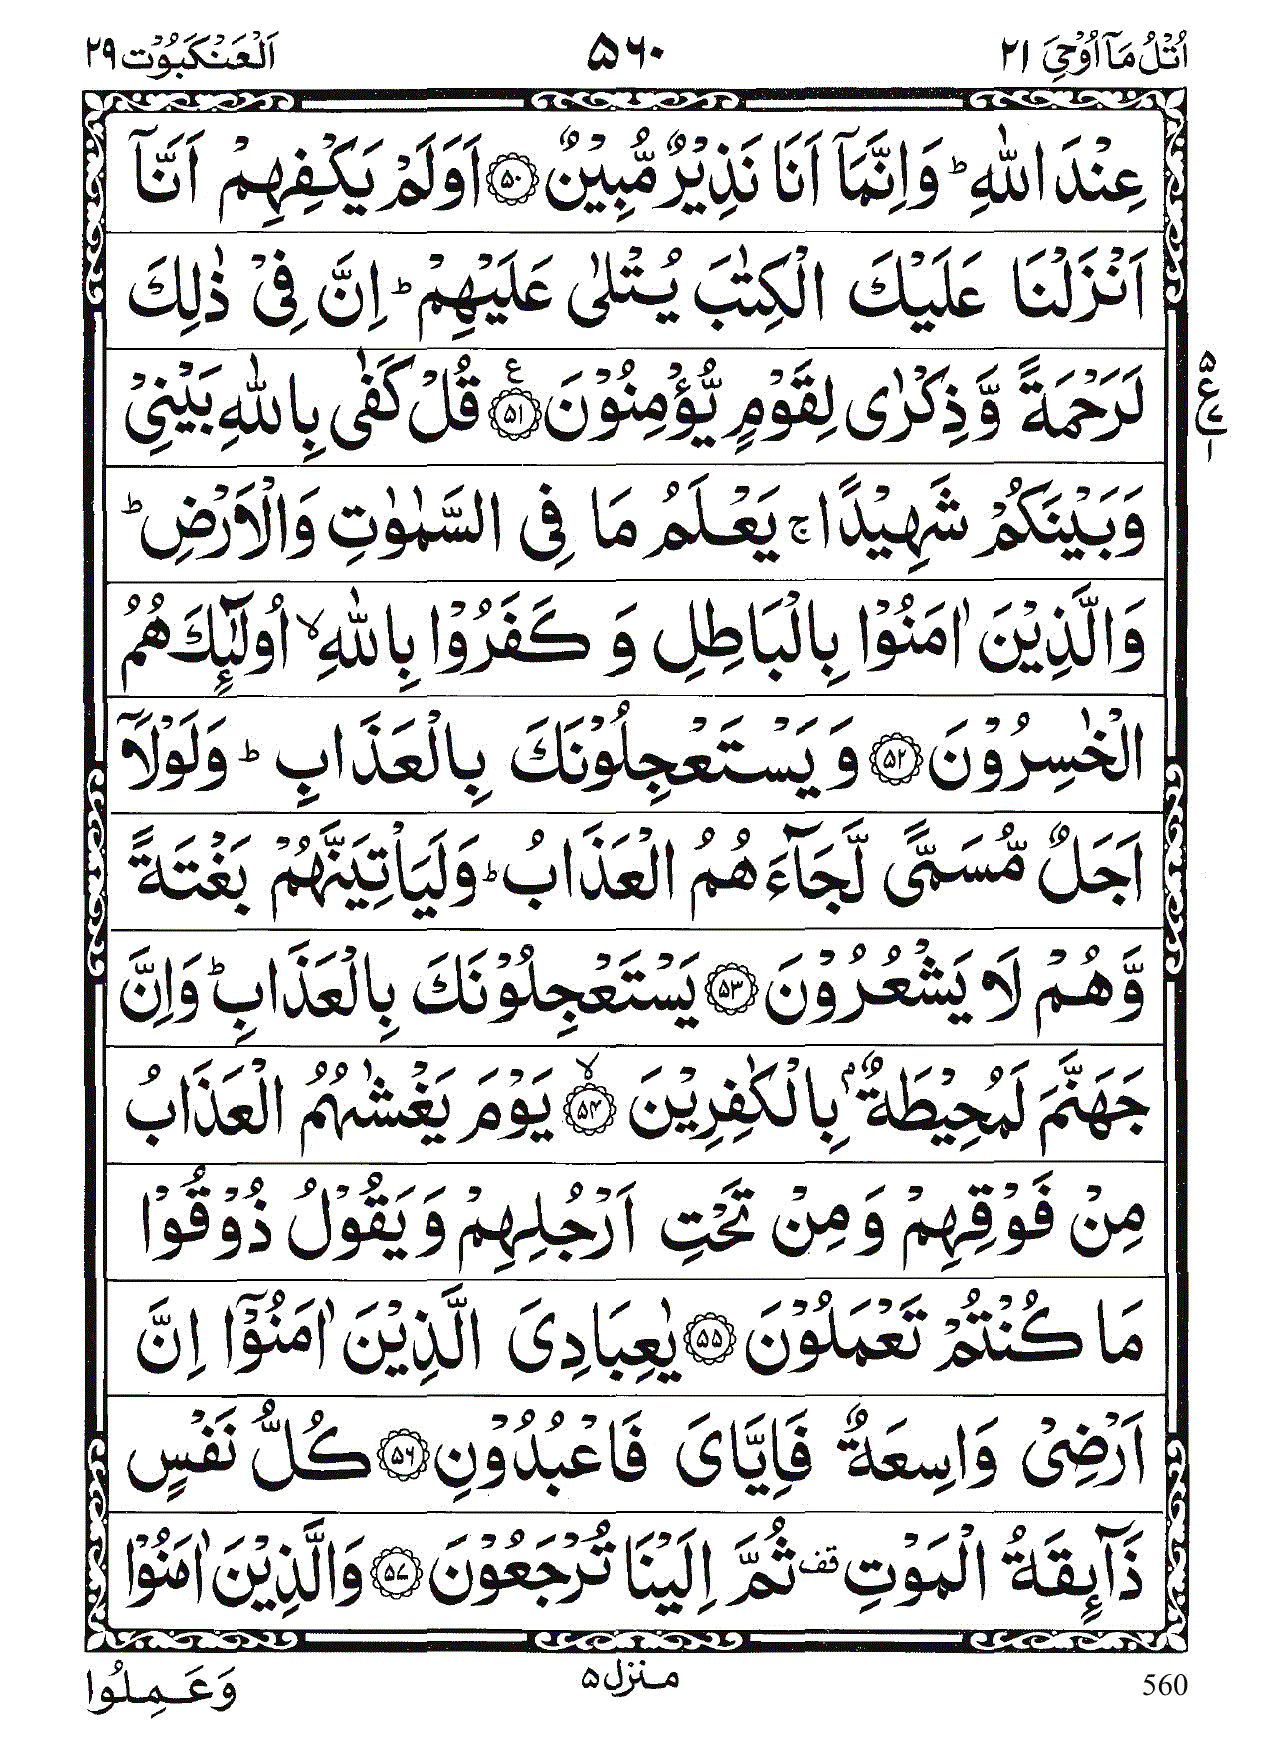 اُتْلُ مَآ اُوْحِیَ ۲۱ ۵۶۰ اَلْعَنْكَبُوْت ۲۹
عِنْدَ اللّٰهِ ؕ وَاِنَّمَآ اَنَا نَذِیْرٌ مُّبِیْنٌ ۝۵۰ اَوَلَمْ یَكْفِهِمْ اَنَّآ
اَنْزَلْنَا عَلَیْكَ الْكِتٰبَ یُتْلٰی عَلَیْهِمْ ؕ اِنَّ فِیْ ذٰلِكَ
لَرَحْمَةً وَّذِكْرٰی لِقَوْمٍ یُّؤْمِنُوْنَ ۝۵۱ ع قُلْ كَفٰی بِاللّٰهِ بَیْنِیْ
۵ ع ۱
وَبَیْنَكُمْ شَهِیْدًا ۚ یَعْلَمُ مَا فِی السَّمٰوٰتِ وَالْاَرْضِ ؕ
وَالَّذِیْنَ اٰمَنُوْا بِالْبَاطِلِ وَ كَفَرُوْا بِاللّٰهِ ۙ اُولٰٓئِكَ هُمُ
الْخٰسِرُوْنَ ۝۵۲ وَ یَسْتَعْجِلُوْنَكَ بِالْعَذَابِ ؕ وَلَوْلَاۤ
اَجَلٌ مُّسَمًّی لَّجَآءَهُمُ الْعَذَابُ ؕ وَلَیَاْتِیَنَّهُمْ بَغْتَةً
وَّهُمْ لَا یَشْعُرُوْنَ ۝۵۳ یَسْتَعْجِلُوْنَكَ بِالْعَذَابِ ؕ وَاِنَّ
جَهَنَّمَ لَمُحِیْطَةٌۢ بِالْكٰفِرِیْنَ ۝۵۴ ۙ یَوْمَ یَغْشٰىهُمُ الْعَذَابُ
مِنْ فَوْقِهِمْ وَمِنْ تَحْتِ اَرْجُلِهِمْ وَیَقُوْلُ ذُوْقُوْا
مَا كُنْتُمْ تَعْمَلُوْنَ ۝۵۵ یٰعِبَادِیَ الَّذِیْنَ اٰمَنُوْۤا اِنَّ
اَرْضِیْ وَاسِعَةٌ فَاِیَّایَ فَاعْبُدُوْنِ ۝۵۶ كُلُّ نَفْسٍ
ذَآئِقَةُ الْمَوْتِ قف ثُمَّ اِلَیْنَا تُرْجَعُوْنَ ۝۵۷ وَالَّذِیْنَ اٰمَنُوْا
560 منزل ۵ وَعَمِلُوا